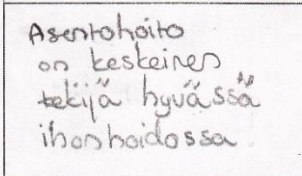 Asentohoito
on keskeinen
tekijä hyvässä
ihonhoidossa